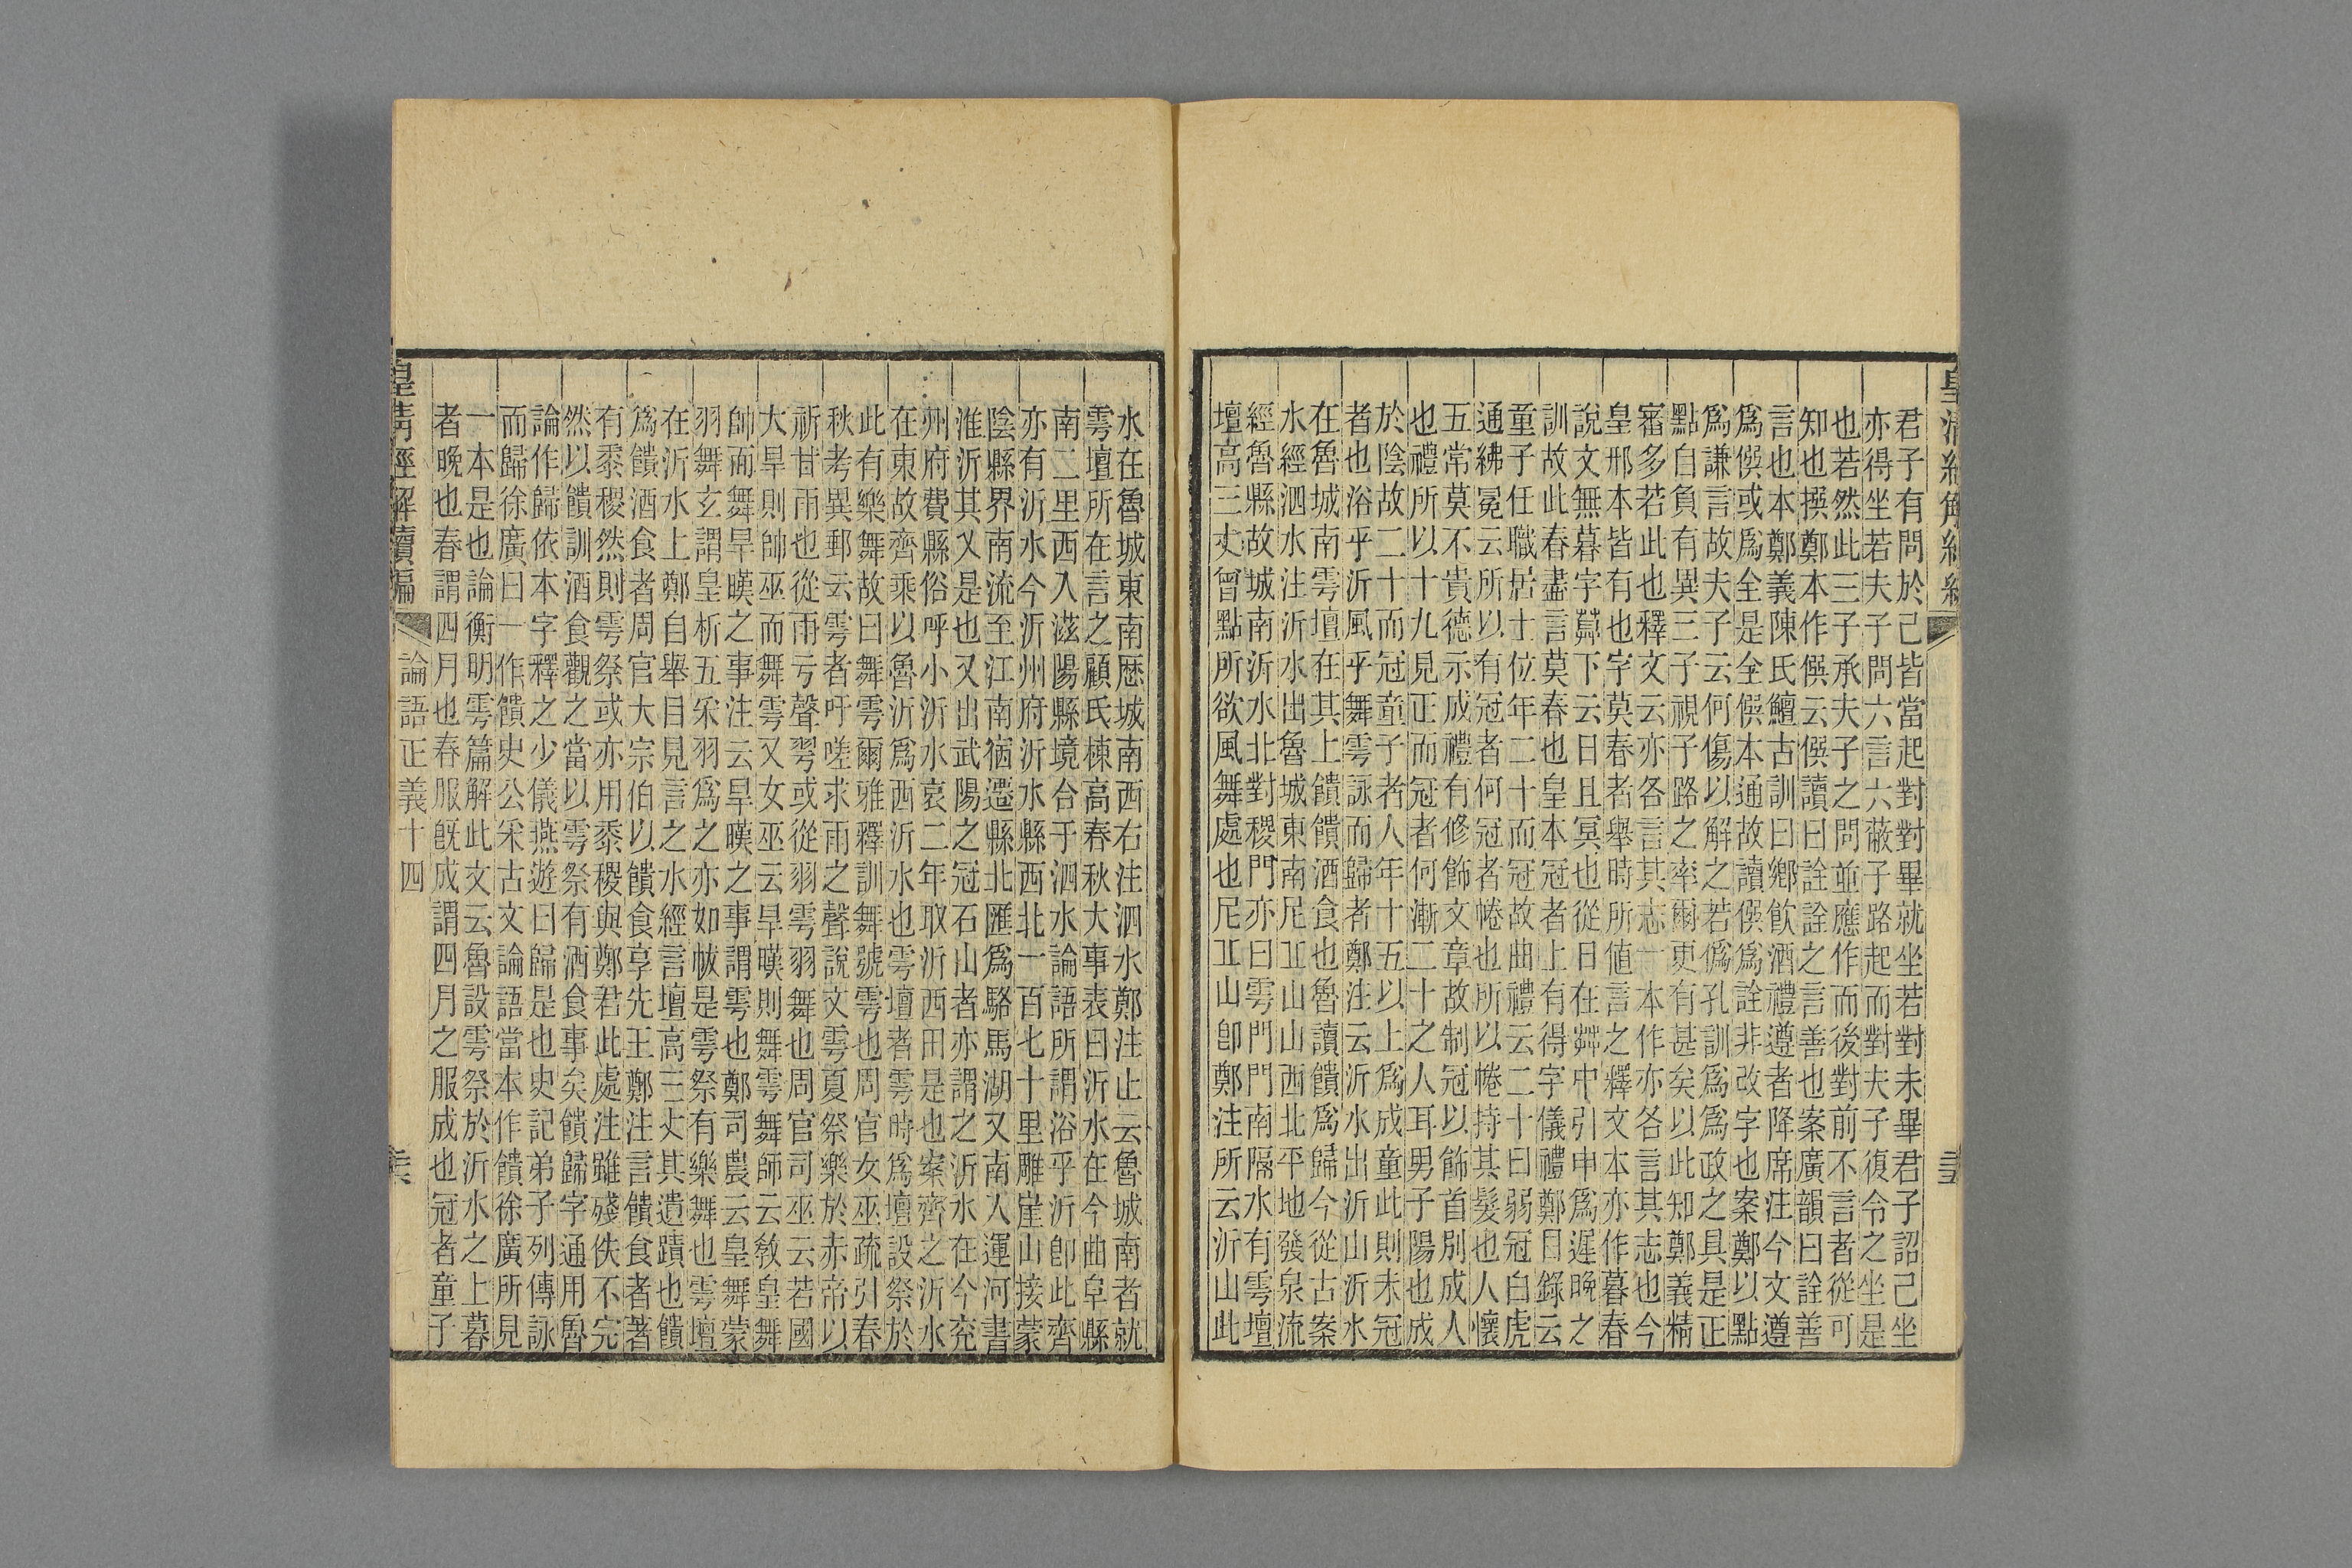 皇清經解續編
君子有問於己皆當起對對畢就坐若對未畢君子詔己坐
亦得坐若夫子問六言六蔽子路起而對夫子復令之坐是
也若然此三子承夫子之問並應作而後對前不言者從可
知也撰鄭本作僎云僎讀曰詮詮之言善也案廣韻曰詮善
言也本鄭義陳氏鱣古訓曰鄉飲酒禮遵者降席注今文遵
爲僎或爲全是全僎本通故讀僎爲詮非改字也案鄭以點
爲謙言故夫子云何傷以解之若僞孔訓爲爲政之具是正
點自負有異三子視子路之率爾更有甚矣以此知鄭義精
審多若此也釋文云亦各言其志一本作亦各言其志也今
皇邢本皆有也字莫春者舉時所値言之釋文本亦作暮春
說文無暮字下云日且冥也從日在茻中引申爲遲晚之
訓故此春盡言莫春也皇本冠者上有得字儀禮鄭目錄云
童子任職居士位年二十而冠故曲禮云二十曰弱冠白虎
通紼冕云所以有冠者何冠者帣也所以帣持其髮也人懷
五常莫不貴德示成禮有修飾文章故制冠以飾首別成人
也禮所以十九見正而冠者何漸二十之人耳男子陽也成
於陰故二十而冠童子者人年十五以上爲成童此則未冠
者也浴乎沂風乎舞雩詠而歸者鄭注云沂水出沂山沂水
在魯城南雩壇在其上饋饋酒食也魯讀饋爲歸今從古案
水經泗水注沂水出魯城東南尼丘山山西北平地發泉流
經魯縣故城南沂水北對稷門亦曰雩門門南隔水有雩壇
壇高三丈曾點所欲風舞處也尼丘山卽鄭注所云沂山此
水在魯城東南歷城南西右注泗水鄭注止云魯城南者就
雩壇所在言之顧氏棟高春秋大事表曰沂水在今曲阜縣
南二里西入滋陽縣境合于泗水論語所謂浴乎沂卽此齊
亦有沂水今沂州府沂水縣西北一百七十里雕崖山接蒙
陰縣界南流至江南宿遷縣北匯爲駱馬湖又南入運河書
淮沂其乂是也又出武陽之冠石山者亦謂之沂水在今兗
州府費縣俗呼小沂水哀二年取沂西田是也案齊之沂水
在東故齊乘以魯沂爲西沂水也雩壇者雩時爲壇設祭於
此有樂舞故曰舞雩爾雅釋訓舞號雩也周官女巫疏引春
秋考異郵云雩者吁嗟求雨之聲說文雩夏祭樂於赤帝以
祈甘雨也從雨亏聲𦏴或從羽雩羽舞也周官司巫云若國
大旱則帥巫而舞雩又女巫云旱暵則舞雩舞師云敎皇舞
帥而舞旱暵之事注云旱暵之事謂雩也鄭司農云皇舞蒙
羽舞玄謂皇析五采羽爲之亦如帗是雩祭有樂舞也雩壇
在沂水上鄭自舉目見言之水經言壇高三丈其遺蹟也饋
爲饋酒食者周官大宗伯以饋食享先王鄭注言饋食者著
有黍稷然則雩祭或亦用黍稷與鄭君此處注雖殘佚不完
然以饋訓酒食觀之當以雩祭有酒食事矣饋歸字通用魯
論作歸依本字釋之少儀燕遊曰歸是也史記弟子列傳詠
而歸徐廣曰一作饋史公采古文論語當本作饋徐廣所見
一本是也論衡明雩篇解此文云魯設雩祭於沂水之上暮
者晚也春謂四月也春服旣成謂四月之服成也冠者童子
皇清經解續編 論語正義十四